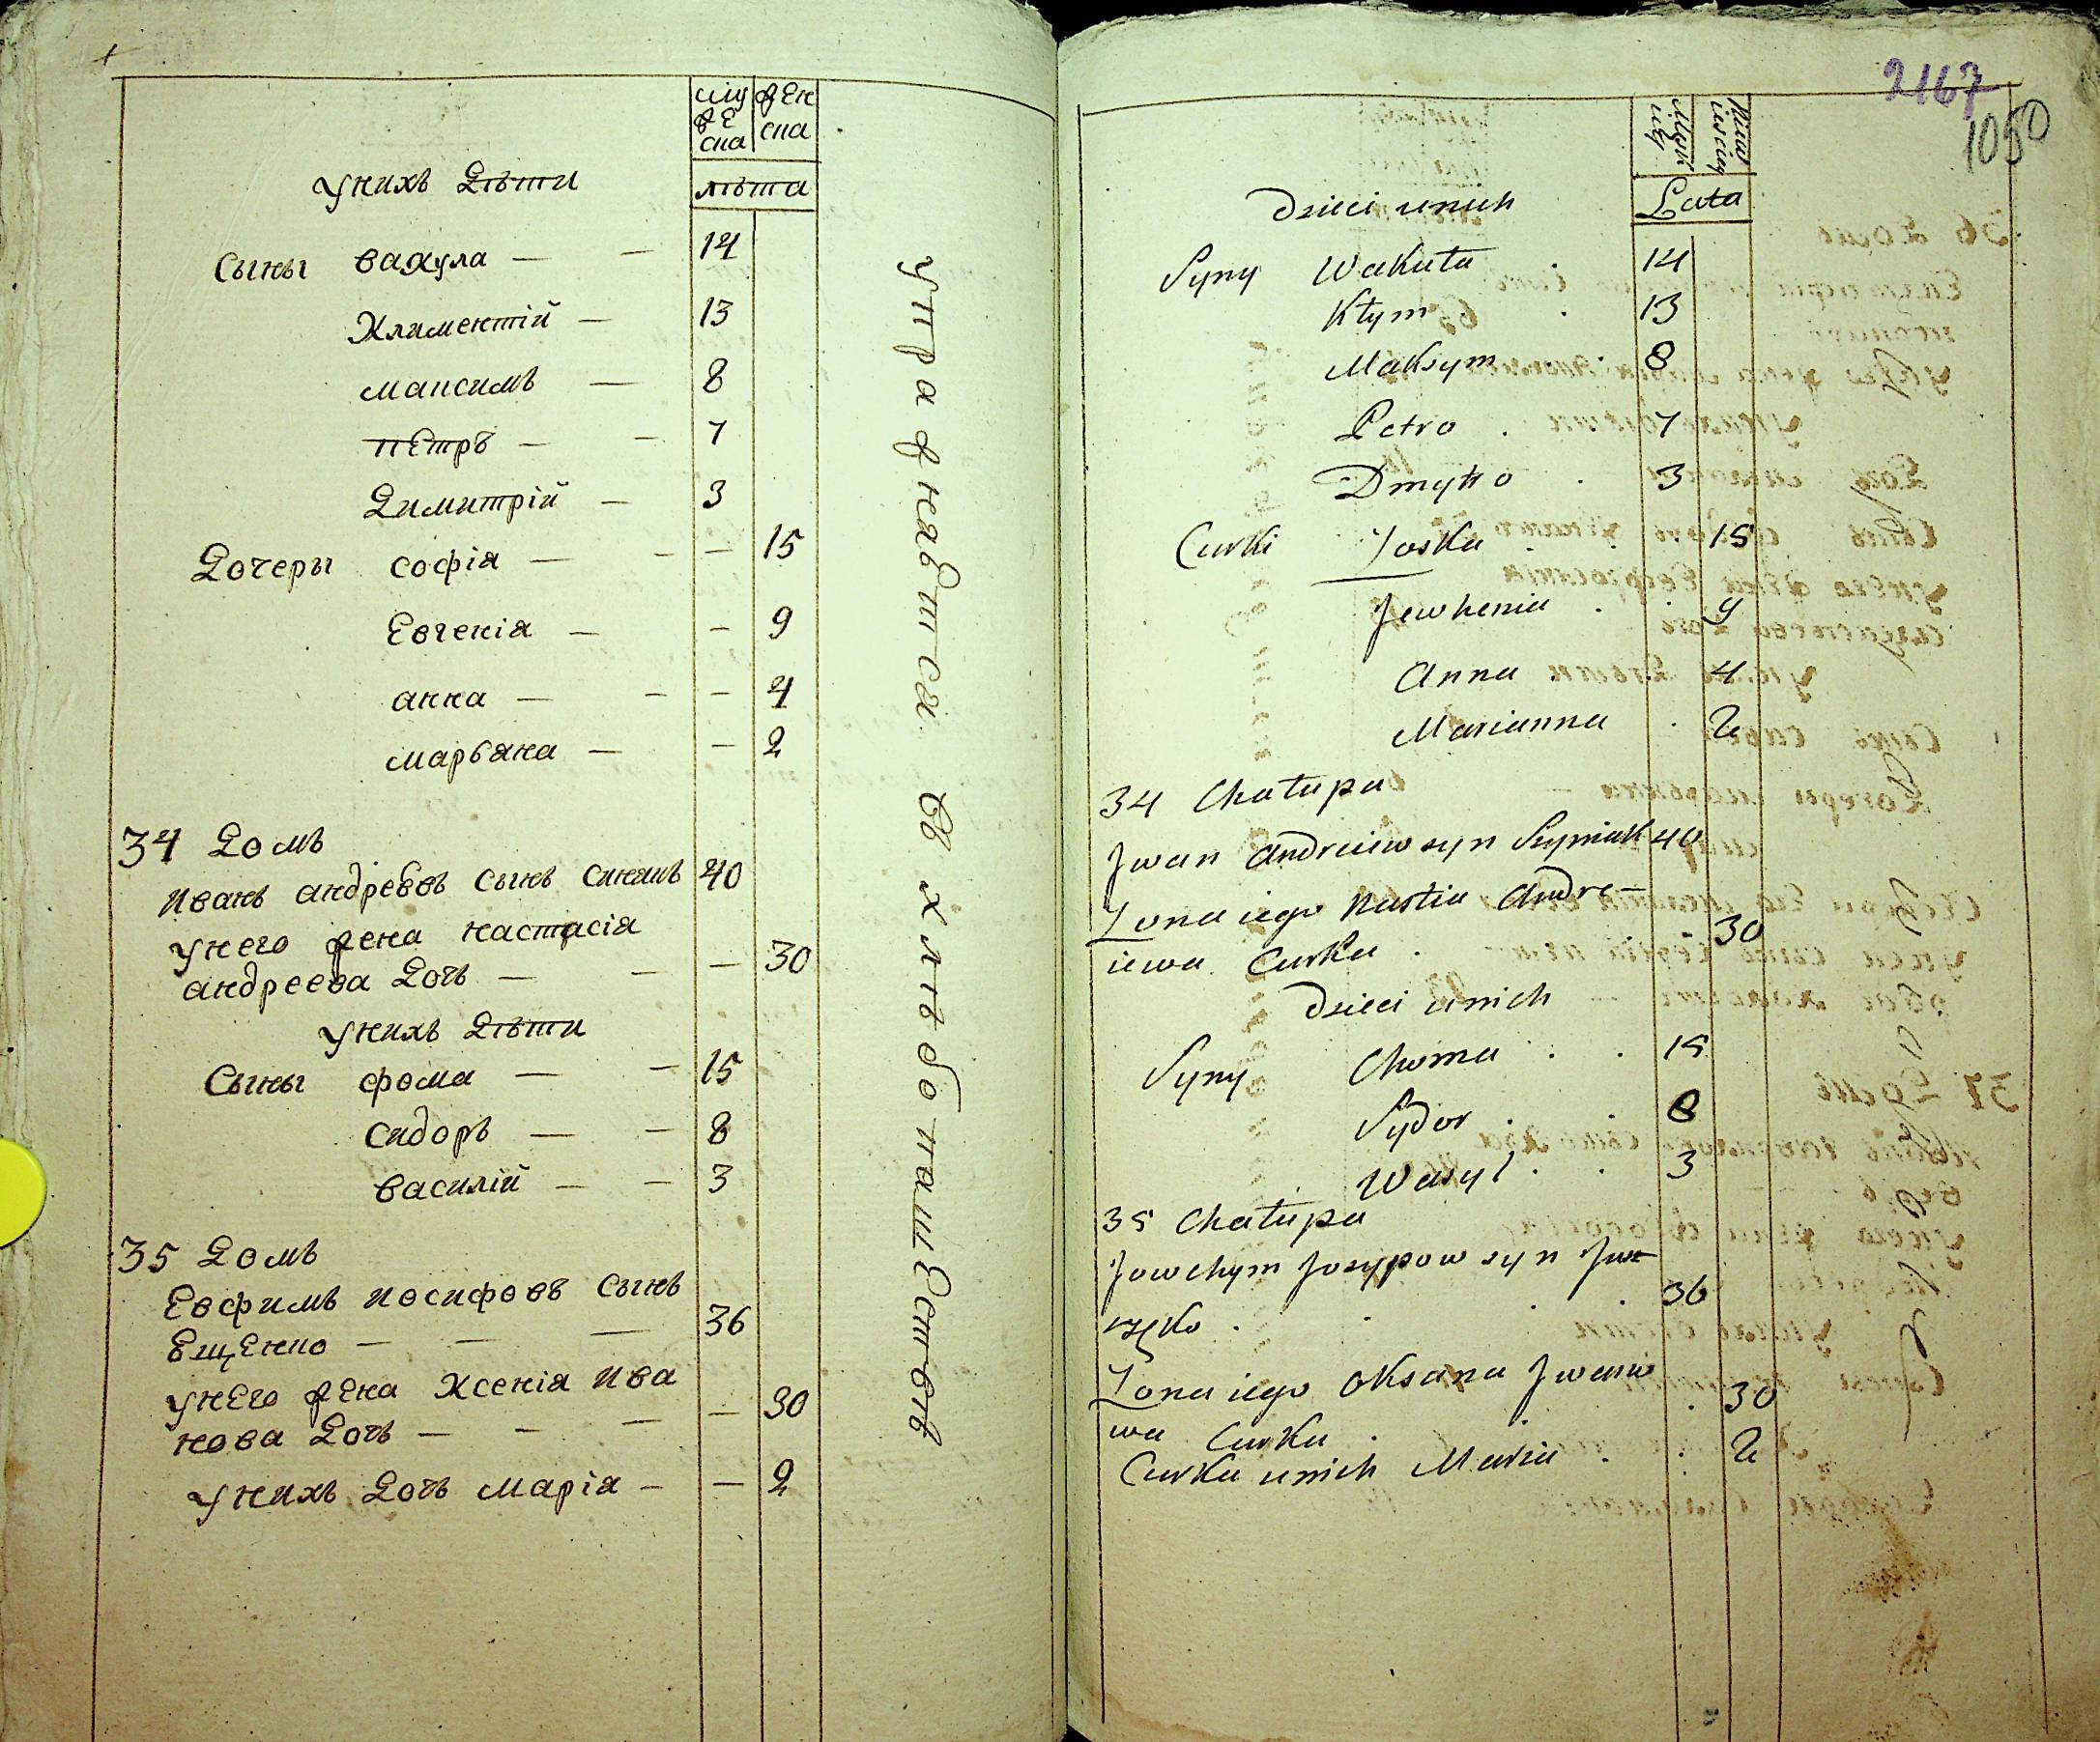 муже
ска
жен
ска
унихъ дѣти
лѣта
Сыны вакула — — 14
Климентій — 13
максимъ — 8
пЕтръ — — 7
Димитрій — 3
Дочеры софія — — — 15
Евгенія — — 9
анна — — — 4
марьяна — — 2
34 Домъ
Иванъ андрѣевъ сынъ синякъ 40
унего жена настасія
андреева Дочь — — — 30
унихъ Дѣти
Сыны фома — — 15
сидоръ — — 8
василій — — 3
35 Домъ
Евфимъ иосифовъ сынъ
Ещенко — — — 36
унЕго жена Ксенія ива
нова Дочь — — — — 30
унихъ Дочь марія — — 2
упражнѣются въ хлѣбопашЕствѣ
2167
1050
Dzieci unich
Lata
Syny Wakuła . 14
Kłym . 13
Maksym . . 8
Petro . 7
Dmytro . 3
Curki Zoska . . . 15
Jewhenia . . 9
Anna . 4
Marianna . 2
34 Chałupa
Jwan Andreiew syn Syniak 40
Zona iego Nastia Andre–
iewa Curka . . . 30
Dzieci unich
Syny Choma . . 15
Sydor . . 8
Wasyl . . 3
35 Chałupa
Jowchym Josypow syn Jesz
częko . . . 36
Zona iego Oksana Jwano
wa Curka . . 30
Curka unich Maria . . 2